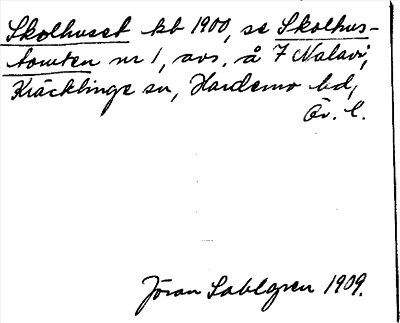 Skolhuset kb 1900, se Skolhus-
tomten nr 1, avs. å 7 Nalavi,
Kräcklinge sn, Hardemo hd,
Ör. l.
Jöran Sahlgren 1909.